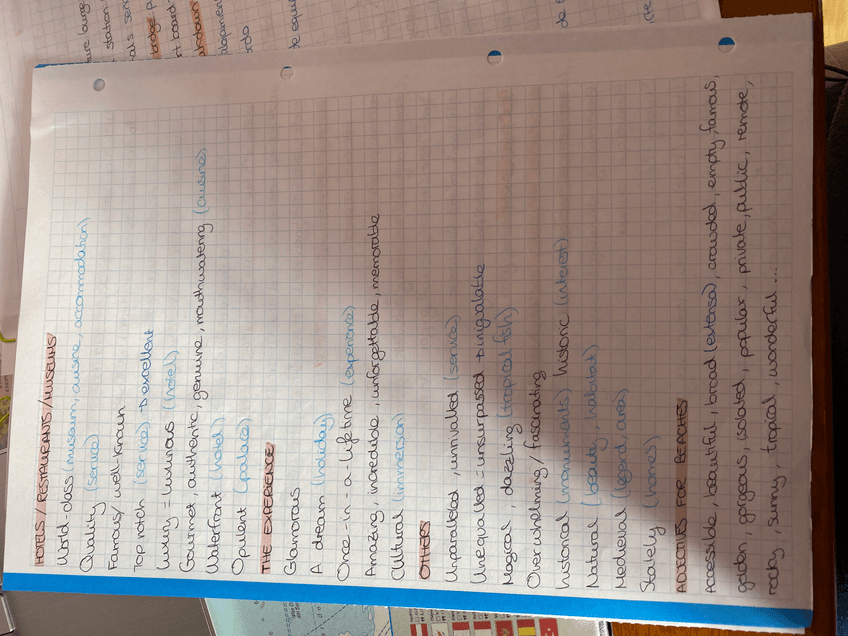 HOTELS / RESTAURANTS / MUSEUMS
World-class (museum, cuisine, accommodation)
Quality (service)
Famous / well-known
Top notch (service) → excellent
Luxury = luxurious (hotel)
Gourmet, authentic, genuine, mouthwatering (cuisine)
Waterfront (hotel)
Opulent (palace)
THE EXPERIENCE
Glamorous
A dream (holiday)
Once-in-a-lifetime (experience)
Amazing, incredible, unforgettable, memorable
Cultural (immersion)
OTHERS
Unparalleled, unrivalled (service)
Unequalled = unsurpassed → inigualable
Magical, dazzling (tropical fish)
Overwhelming / fascinating
historical (monuments) historic (interest)
Natural (beauty, habitat)
Medieval (legend, area)
Stately (homes)
ADJECTIVES FOR BEACHES
Accessible, beautiful, broad (extensa), crowded, empty, famous,
golden, gorgeous, isolated, popular, private, public, remote,
rocky, sunny, tropical, wonderful...